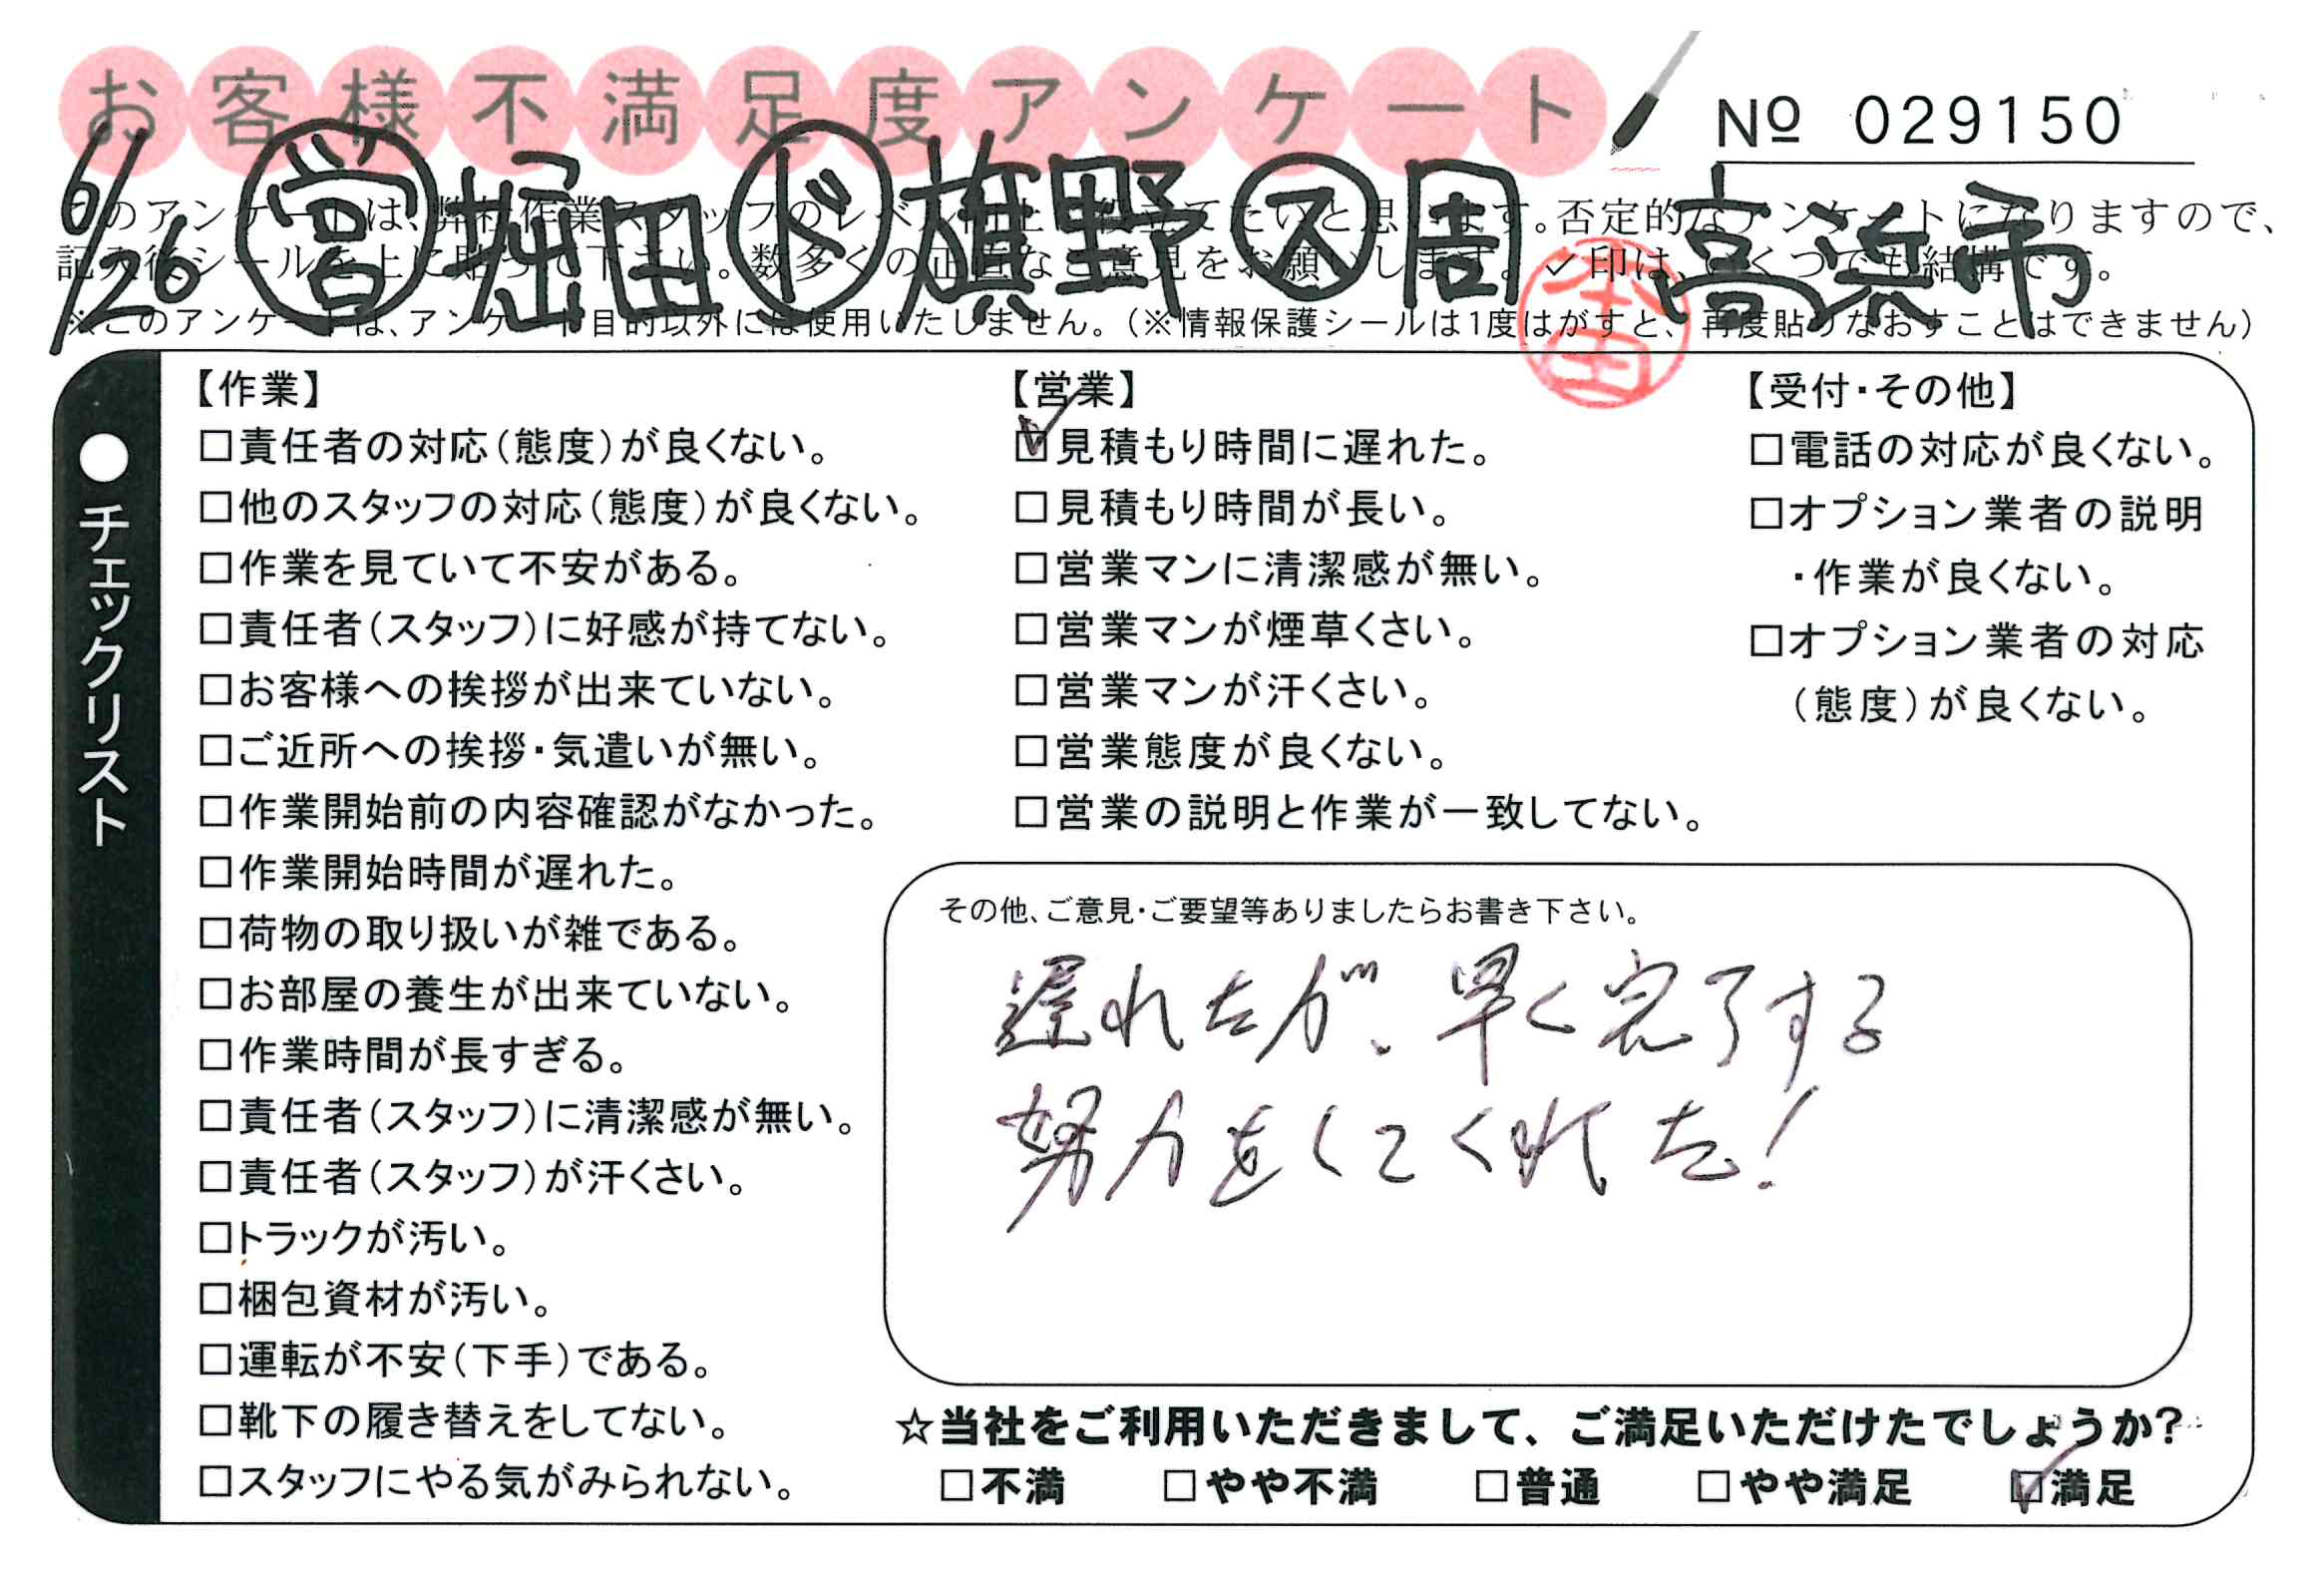 お客様不満足度アンケート
№ 029150
6/26 営 堀田 ド 旗野 ス 周 高浜市
このアンケートは、弊社作業スタッフのレベル向上に役立てたいと思います。否定的なアンケートになりますので、
記入後シールを上に貼って下さい。数多くの正直なご意見をお願いします。✓印は、いくつでも結構です。
※このアンケートは、アンケート目的以外には使用いたしません。(※情報保護シールは1度はがすと、再度貼りなおすことはできません)
本田
●チェックリスト
【作業】
□責任者の対応(態度)が良くない。
□他のスタッフの対応(態度)が良くない。
□作業を見ていて不安がある。
□責任者(スタッフ)に好感が持てない。
□お客様への挨拶が出来ていない。
□ご近所への挨拶・気遣いが無い。
□作業開始前の内容確認がなかった。
□作業開始時間が遅れた。
□荷物の取り扱いが雑である。
□お部屋の養生が出来ていない。
□作業時間が長すぎる。
□責任者(スタッフ)に清潔感が無い。
□責任者(スタッフ)が汗くさい。
□トラックが汚い。
□梱包資材が汚い。
□運転が不安(下手)である。
□靴下の履き替えをしてない。
□スタッフにやる気がみられない。
【営業】
☑見積もり時間に遅れた。
□見積もり時間が長い。
□営業マンに清潔感が無い。
□営業マンが煙草くさい。
□営業マンが汗くさい。
□営業態度が良くない。
□営業の説明と作業が一致してない。
【受付・その他】
□電話の対応が良くない。
□オプション業者の説明
・作業が良くない。
□オプション業者の対応
(態度)が良くない。
その他、ご意見・ご要望等ありましたらお書き下さい。
遅れたが、早く完了する
努力をしてくれた!
☆当社をご利用いただきまして、ご満足いただけたでしょうか?
□不満 □やや不満 □普通 □やや満足 ☑満足